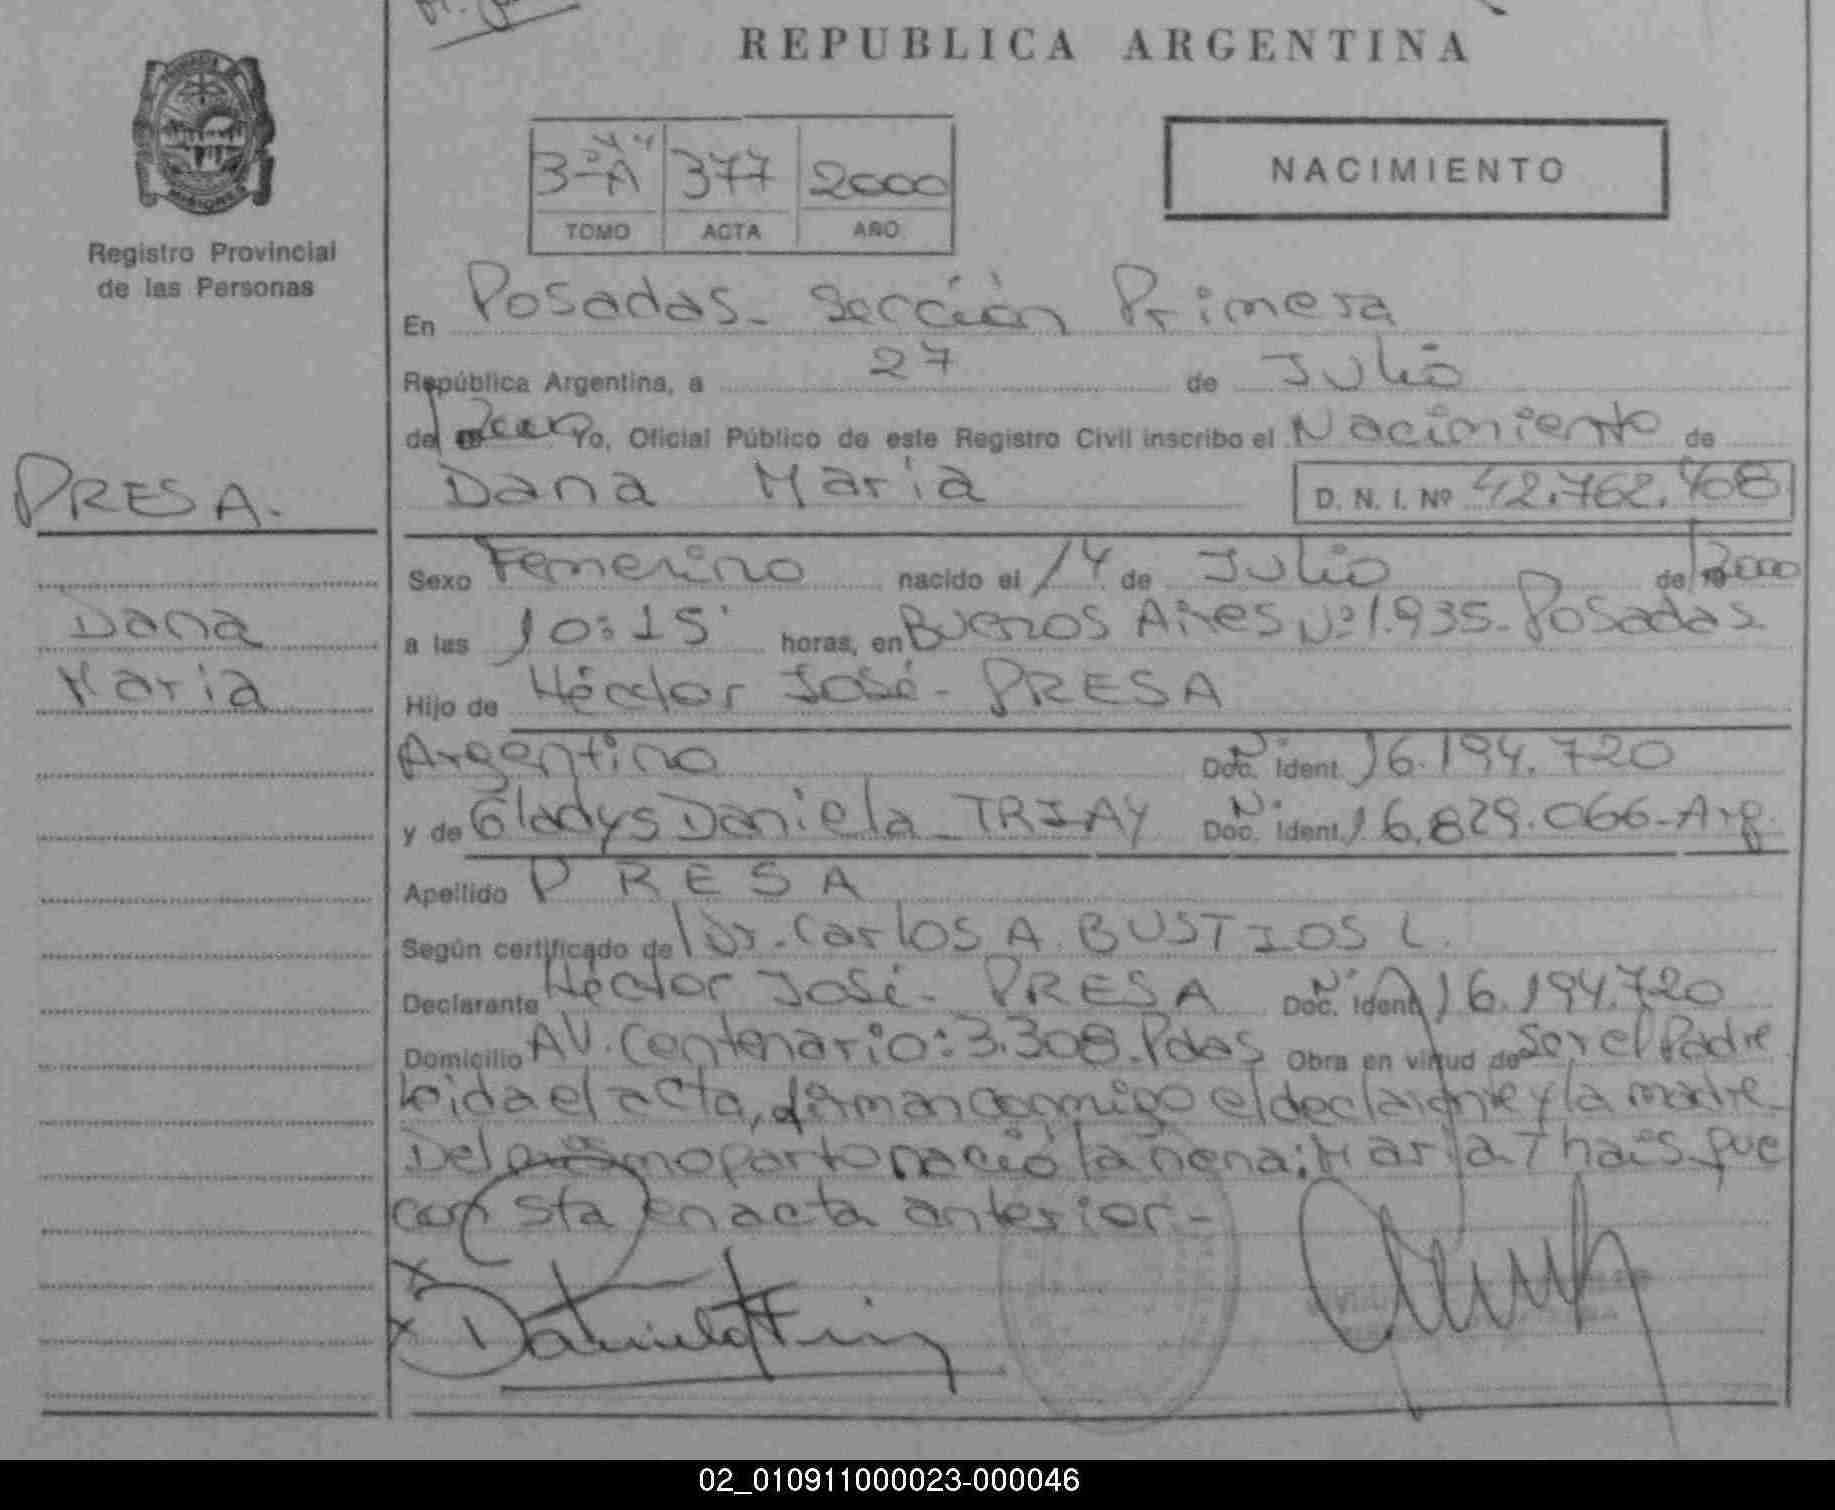 REPUBLICA ARGENTINA
3ºA 377 2000
TOMO ACTA AÑO
NACIMIENTO
Registro Provincial
de las Personas
En Posadas - Sección Primera
República Argentina, a 27 de Julio
de 2000 Yo, Oficial Público de este Registro Civil inscribo el Nacimiento de
PRESA.
Dana María D. N. I. Nº 42.762.468
Sexo Femenino nacido el 14 de Julio de 2000
Dana
María
a las 10:15' horas, en Buenos Aires Nº 1.935 - Posadas.
Hijo de Héctor José - PRESA
Argentino Nº Doc. Ident. 16.194.720
y de Gladys Daniela - TRIAY Nº Doc. Ident. 16.829.066 - Arg.
Apellido PRESA
Según certificado de Dr. Carlos A. BUSTIOS L.
Declarante Héctor José - PRESA Nº Doc. Ident. 16.194.720
Domicilio AV. Centenario: 3.308 - Pdas Obra en virtud de Ser el Padre
Leida el acta, firman conmigo el declarante y la madre
Del mismo parto nació la nena: María Thais que
consta en acta anterior -
02_010911000023-000046